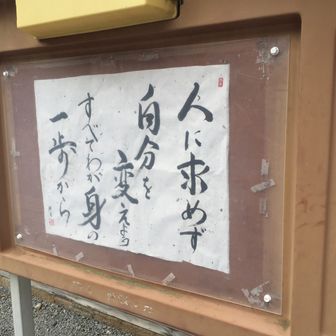 人に求めず
自分を
変えよう
すべてわが身の
一歩から